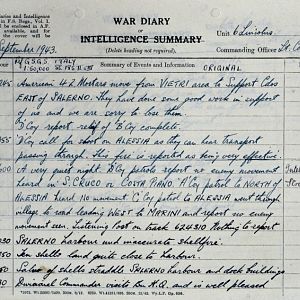 aries and Intelligence
in F.S. Regs., Vol. I.
be enclosed in A.F.
available, and for
the cover will be
WAR DIARY
INTELLIGENCE SUMMARY
(Delete heading not required).
Unit 6 Lincolns.
Commanding Officer Lt. Co
September 1943.
G.S.G.S. ITALY
1:50,000
Summary of Events and Information ORIGINAL
American 4.2 Mortars move from VIETRI area to support Cdos
EAST of SALERNO. They have done some good work in support
of us and we are sorry to lose them.
D'Coy report relief of B'Coy complete.
D'Coy call for shoot on ALESSIA as they can hear transport
passing through. This fire is reported as being very effective
A very quiet night. D'Coy patrols report no enemy movement
heard in S. CRUCO or COSTA PIANO. A'Coy patrol to NORTH of
ALESSIA heard no movement. C'Coy patrol to ALESSIA went through
village to road leading WEST to MARINI and report no enemy
movement seen. Listening post on track 624310 Nothing to report
SALERNO harbour inaccurate shellfire.
Ten shells land quite close to harbour.
Salvo of shells straddle SALERNO harbour and dock buildings
Divisional Commander visits Bn. H.Q. and is well pleased